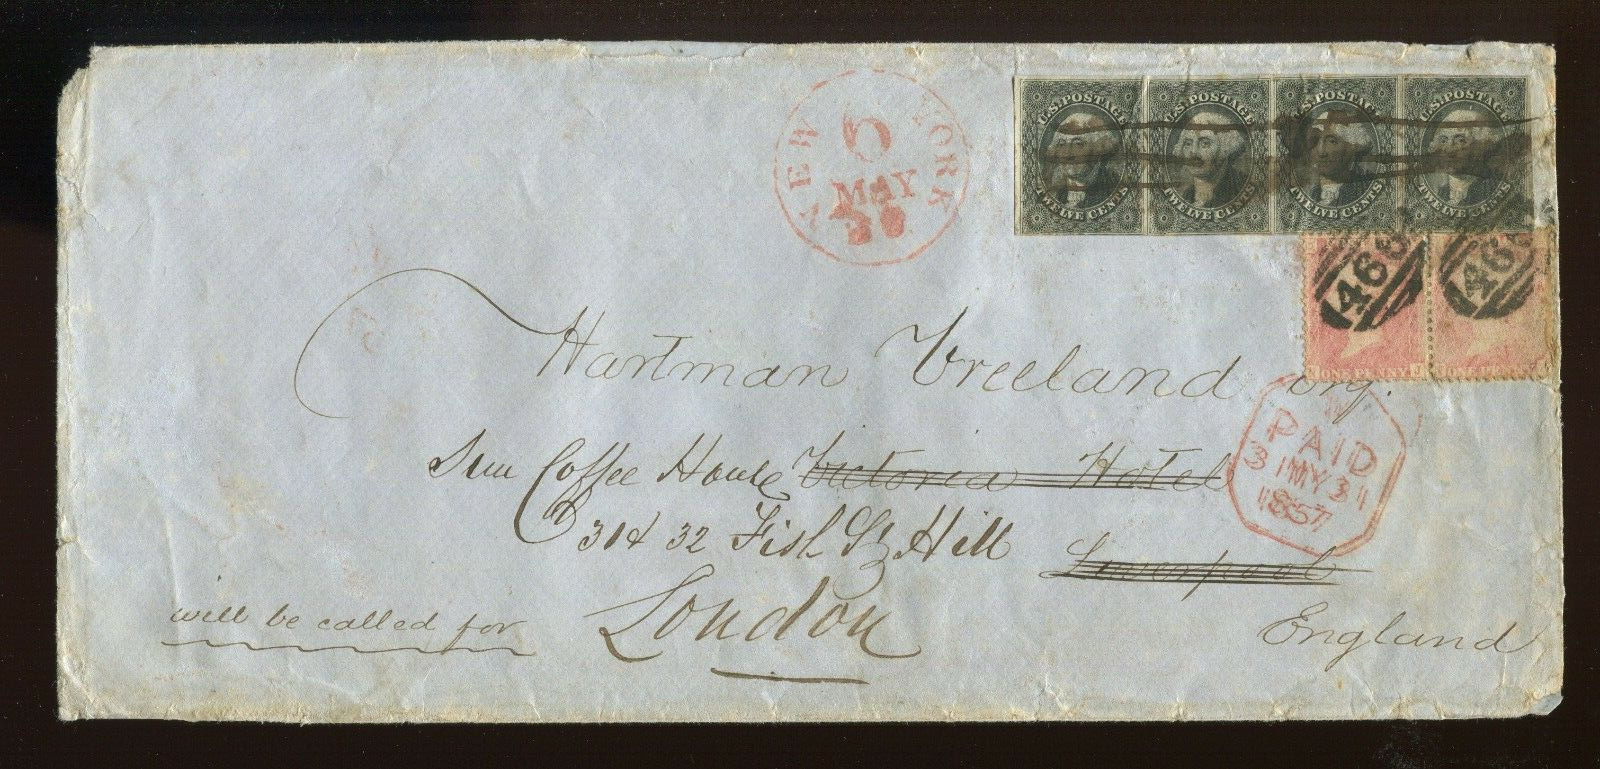 NEW YORK
6
MAY
U.S. POSTAGE U.S. POSTAGE U.S. POSTAGE U.S. POSTAGE
TWELVE CENTS TWELVE CENTS TWELVE CENTS TWELVE CENTS
466 466
ONE PENNY ONE PENNY
Hartman Vreeland Esq.
Sun Coffee House Victoria Hotel
31 & 32 Fish St Hill Liverpool
will be called for London England
PAID
31 MY 31
1857